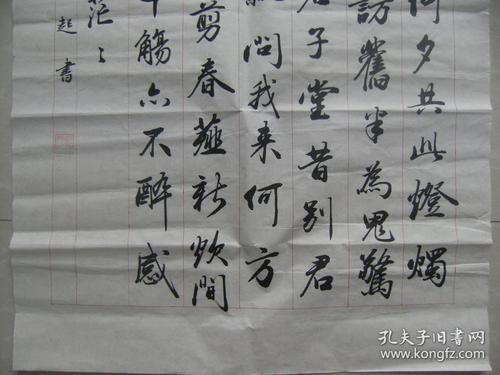 何夕共此燈燭
訪舊半為鬼驚
君子堂昔别君
問我来何方
剪春韮新炊間
十觴亦不醉感
茫々
起書
孔夫子旧书网
www.kongfz.com